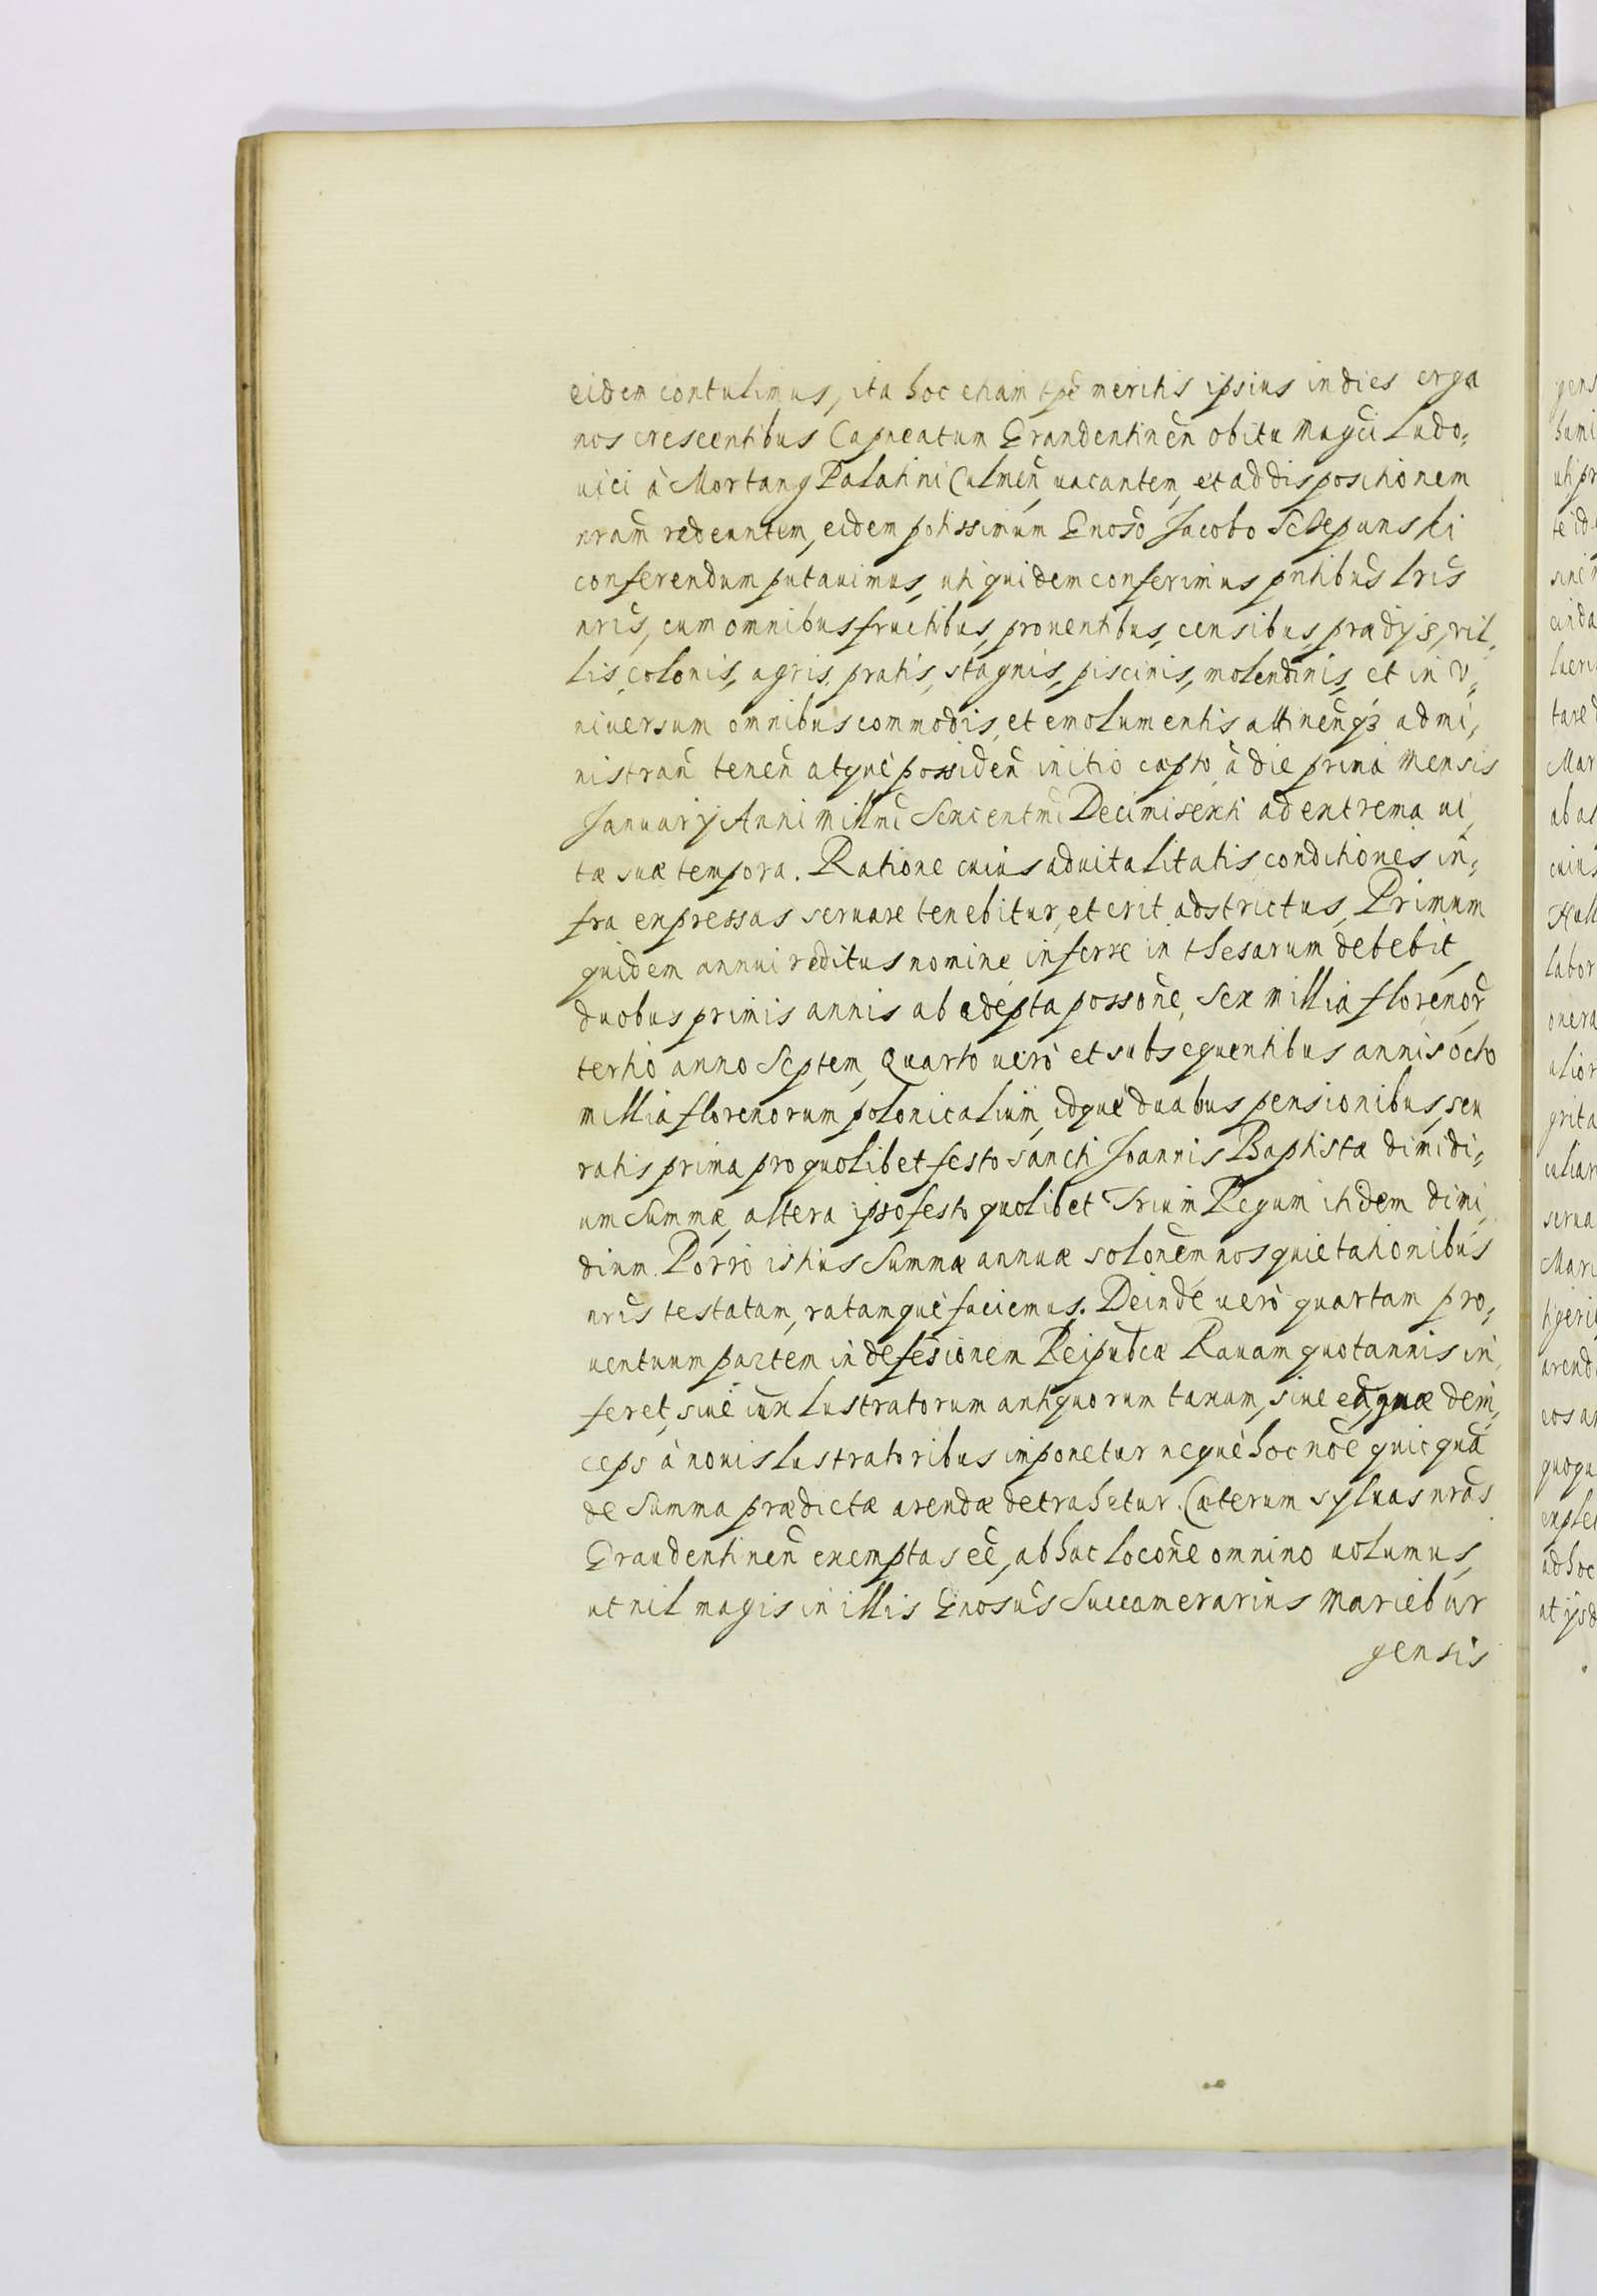 eidem contulimus, ita hoc etiam tpe meritis ipsius indies erga
nos crescentibus Capneatum Graudentinen̄ obitu Magci Ludo=
uici à Mortang Palatini Culmen̄, uacantem, et ad dispositionem
nram̄ redeuntem, eidem potissimum Gnoso Jacobo Sczepanski
conferendum putauimus, uti quidem conferimus pntibus̄ lris̄
nris̄, cum omnibus fructibus, prouentibus, censibus, praedijs, vil=
lis, colonis, agris, pratis, stagnis, piscinis, molendinis, et in V=
niuersum omnibus commodis, et emolumentis attinen̄qз admi=
nistran̄ tenen̄ atquè possiden̄ initio cæpto à die prima Mensis
Januarij Anni Millmi Sexcentmi Decimi sexti ad extrema ui=
tæ suæ tempora. Ratione cuius aduitalitatis conditiones in=
fra expressas seruare tenebitur, et erit adstrictus, Primum
quidem annui reditus nomine inferre in thesarum debebit,
duobus primis annis ab adepta possone, Sex millia florenor̄,
tertio anno Septem, Quarto uerò et subsequentibus annis octo
millia florenorum polonicalium, idquè duabus pensionibus, seu
ratis prima pro quolibet festo sancti Joannis Baptistæ dimidi=
um Summæ, altera ipso festo quolibet Trium Regum itidem dimi=
dium. Porrò istius Summæ annuæ solonem̄ nos quietationibus
nris̄ testatam, ratamquè faciemus. Deindè uerò quartam pro=
uentuum partem in defesionem Reipubcæ Rauam quotannis in=
feret, siuè iux̄ lustratorum antiquorum taxam, siue eā, quæ dein=
ceps à nouis lustratoribus imponetur nequè hoc noē quicquā
de Summa prædictæ arendæ detrahetur. Cæterum syluas nras̄
Graudentinen̄ exemptas eē, ab hac locone omnino uolumus,
ut nil magis in illis Gnosus̄ Succamerarius Mariebur
gensis